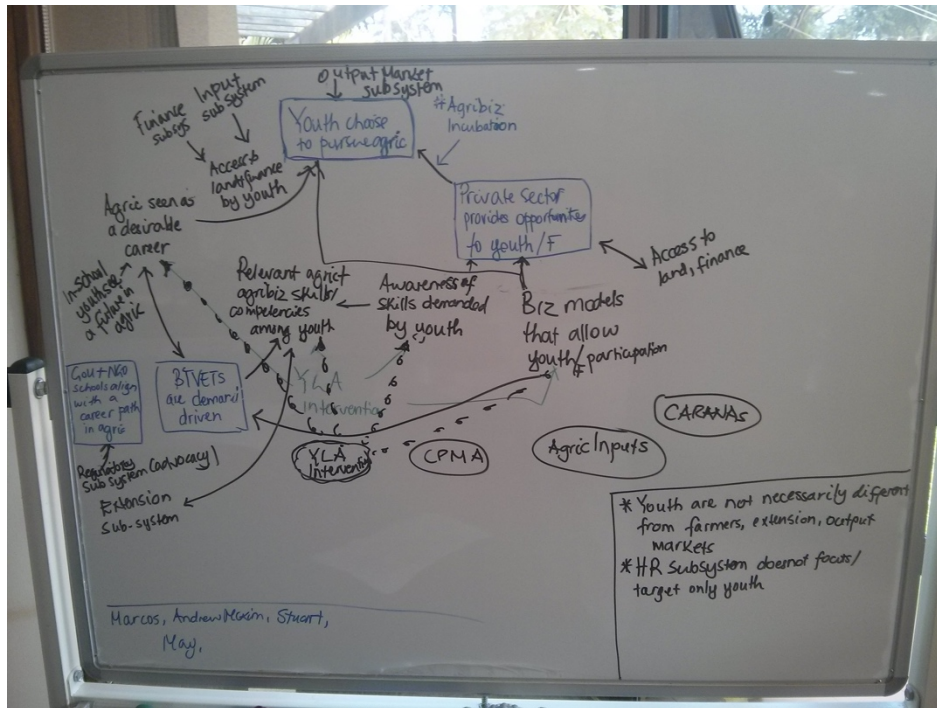 Output Market
subsystem
Finance
subsys
Input
subsystem
Youth choose
to pursue agric
# Agribiz
Incubation
Access to
land+finance
by youth
Agric seen as
a desirable
career
Private Sector
provides opportunities
to youth/F
Access to
land, finance
In-school
youth see
a future in
agric
Relevant agric+
agribiz skills/
competencies
among youth
Awareness of
skills demanded
by youth
Biz models
that allow
youth/F participation
GoU+NGO
schools align
with a
career path
in agric
BTVETs
are demand
driven
YLA
intervention
YLA
Intervention
CPMA
Agric Inputs
CARANAs
Regulatory
Subsystem (advocacy)
Extension
sub-system
* Youth are not necessarily different
from farmers, extension, output
markets
* HR subsystem does not focus/
target only youth
Marcos, Andrew Maxim, Stuart,
May,